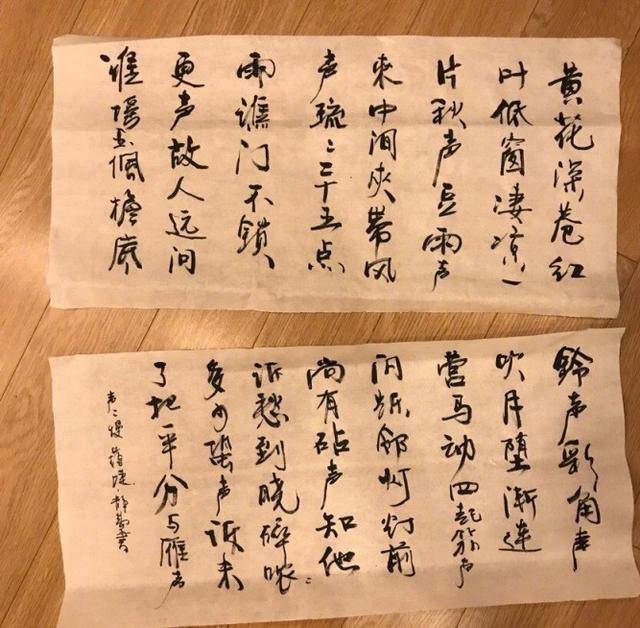 黄花深巷红
叶低窗凄凉一
片秋声豆雨声
来中间夹带风
声疏〻二十五点
丽谯门不锁
更声故人远问
谁摇玉佩檐底
铃声彩角声
吹月堕渐连
营马动四起笳声
闪烁邻灯灯前
尚有砧声知他
诉愁到晓碎哝〻
多少蛩声诉未
了把一半分与雁声
声〻慢 蒋捷 书